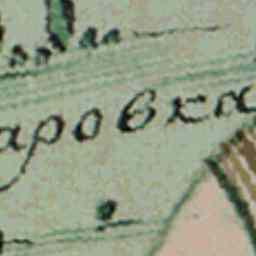 аровка